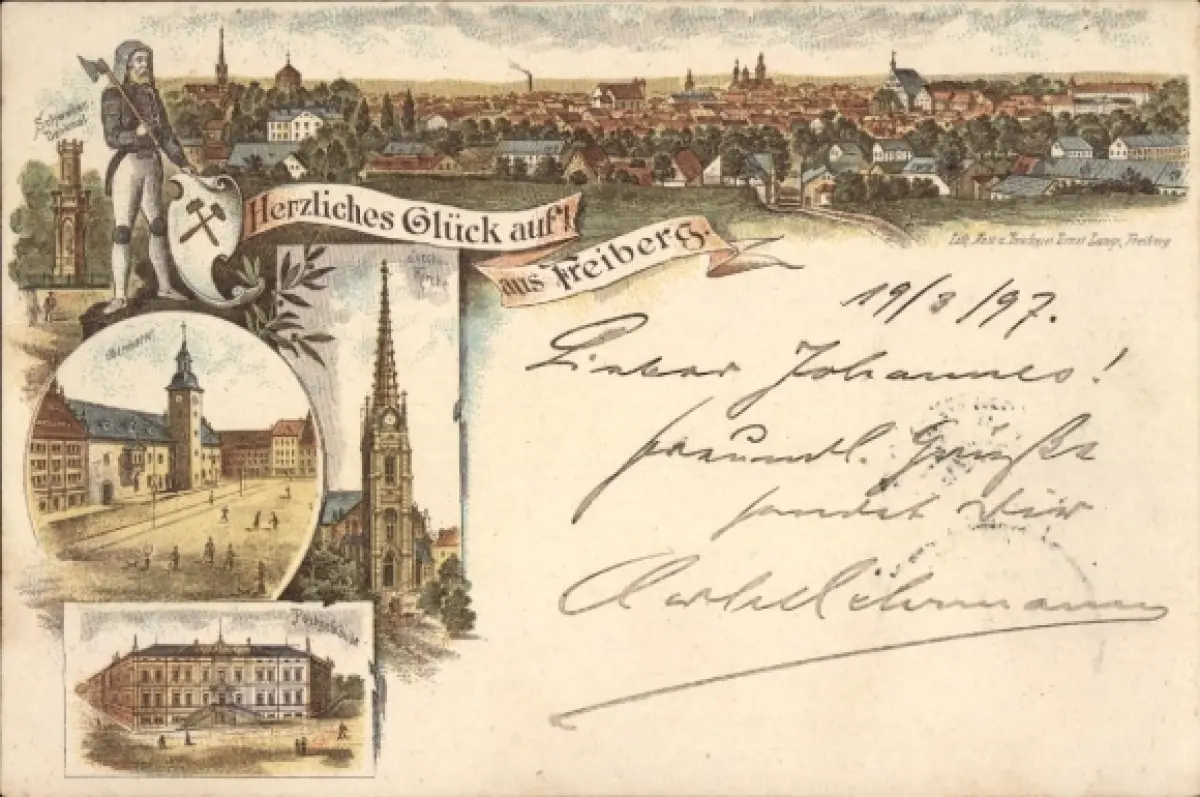 Schweden
Denkmal
Herzliches Glück auf!
aus Freiberg.
Lith. Anst. v. Bruckner Ernst Lange, Freiberg
Obermarkt
Kirche
Postgebäude
19/3/97.
Lieber Johannes!
freundl. Grüße
sendet Dir